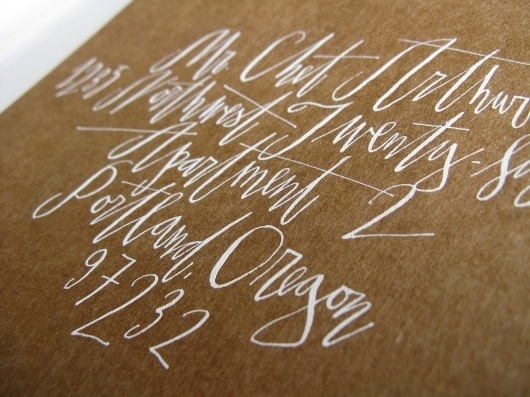 Mr. Chet Arthur
Northwest Twenty-
Apartment 2
Portland, Oregon
97232